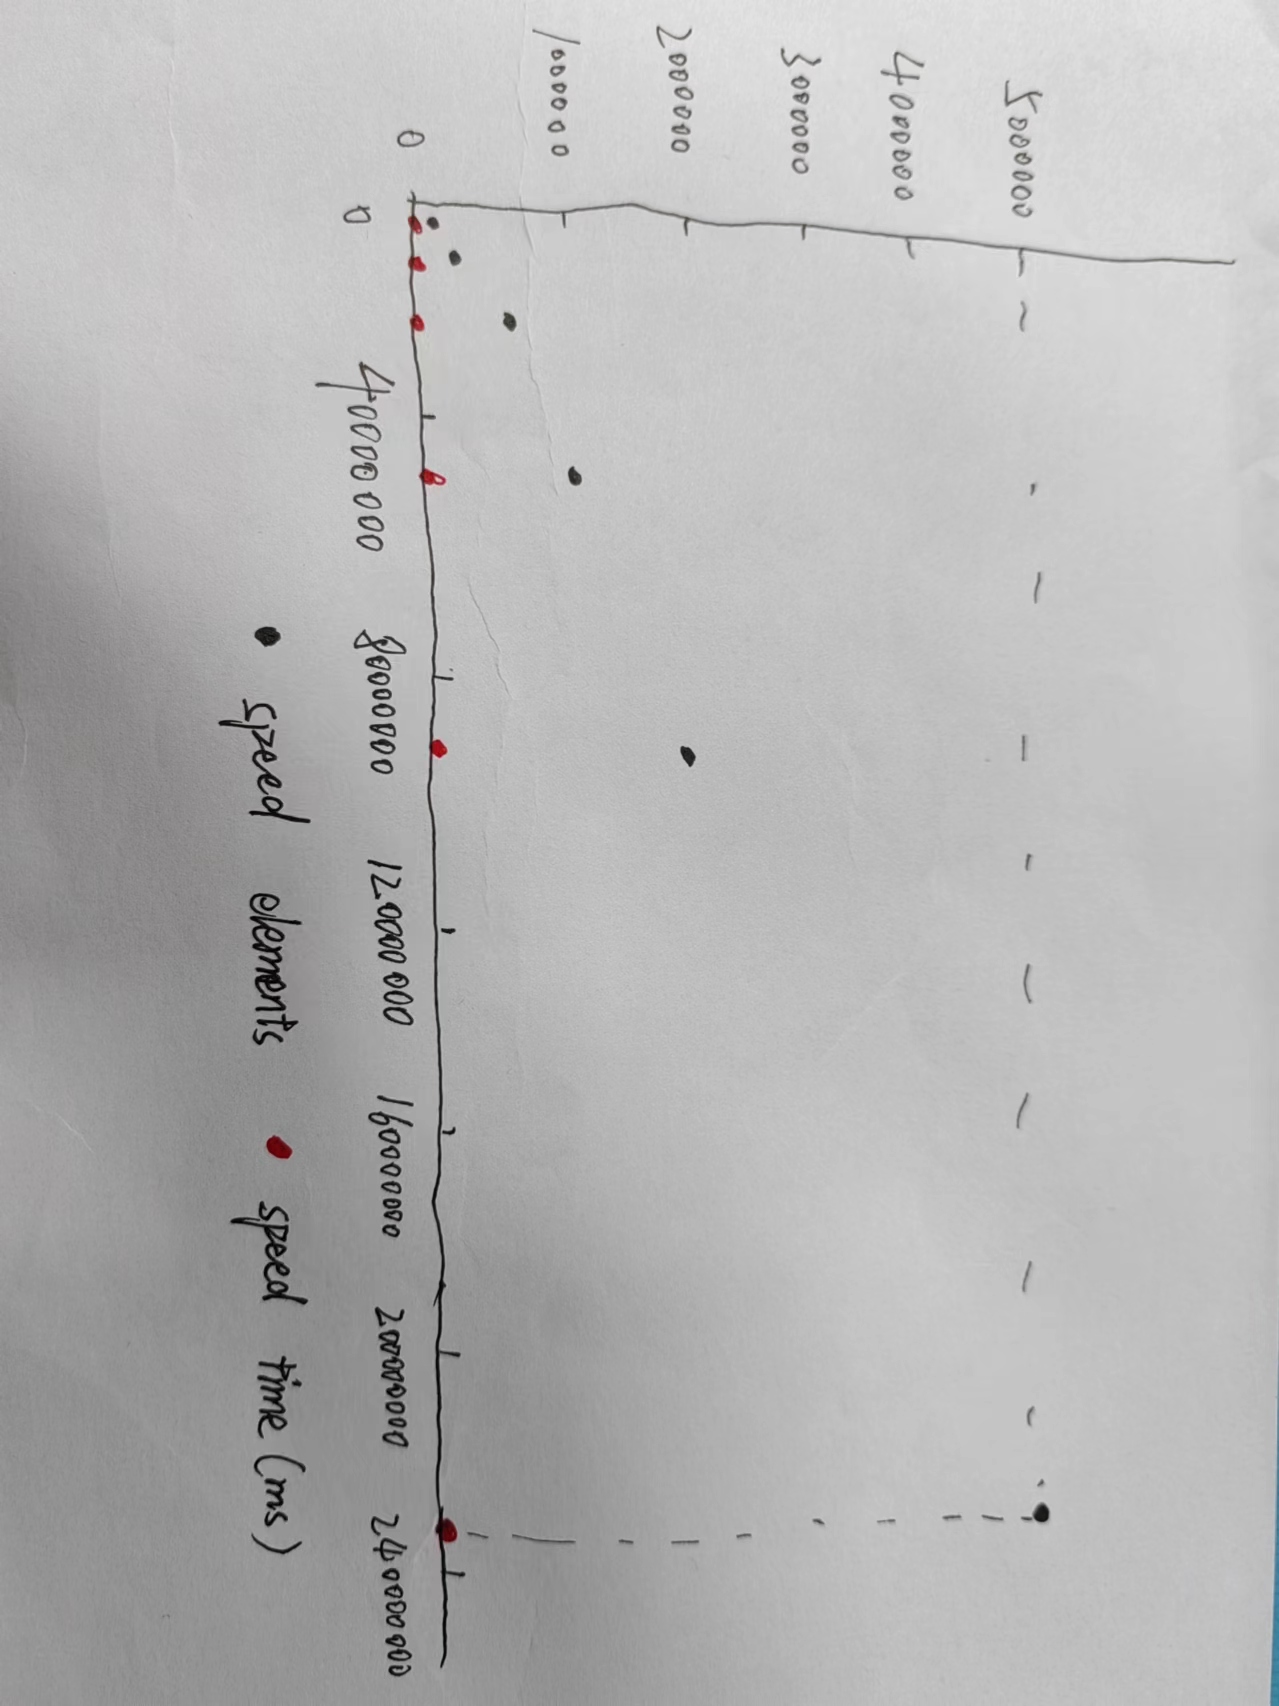 5000000
4000000
3000000
2000000
1000000
0
0 40000000 80000000 120000000 160000000 200000000 240000000
speed elements speed time (ms)